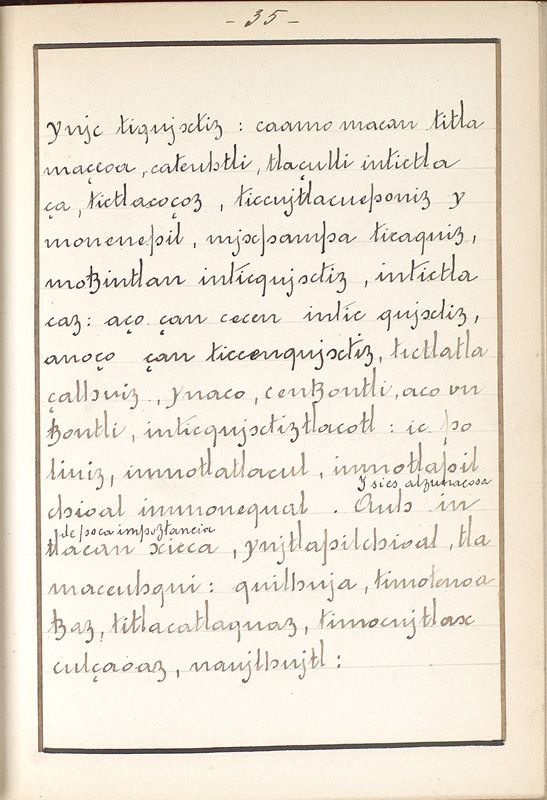 - 35 -
ynjc tiqujxtiz : caamo macan titla
maçcoa , catcuhtli , tlaçulli intictla
ça , tictlacoçoz , ticcujtlacueponiz y
monenepil , mjxpampa ticaquiz ,
motzintlan inticqujxtiz , intictla
caz : aço çan cecen intic qujxtiz ,
anoço çan ticcenqujxtiz , tictlatla
çalhuiz , ynaço , centzontli , aco vn
tzontli , inticqujxtiztlacotl : ic po
liuiz , inmotlatlacul , inmotlapil
chioal inmonequal . Auh in
Y si es alzunacosa
tlacan xicca , ynjtlapilchioal , tla
de poca importancia
maceuhqui : quilhuja , timotenoa
tzaz , titlacatlaquaz , timocujtlax
culçaoaz , naujlhujtl :